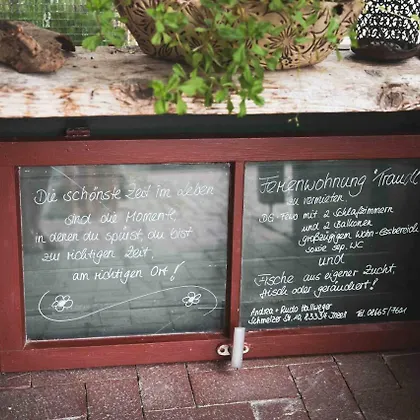 Die schönste Zeit im Leben
sind die Momente,
in denen du spürst, du bist
zur richtigen Zeit,
am richtigen Ort!
Ferienwohnung "Traudl"
zu vermieten.
DG-Fewo mit 2 Schlafzimmern
und 2 Balkonen
großzügigem Wohn-Essbereich
sowie sep. WC
und
Fische aus eigener Zucht,
frisch oder geräuchert!
Andrea + Rudo
Tel. 08665/7601